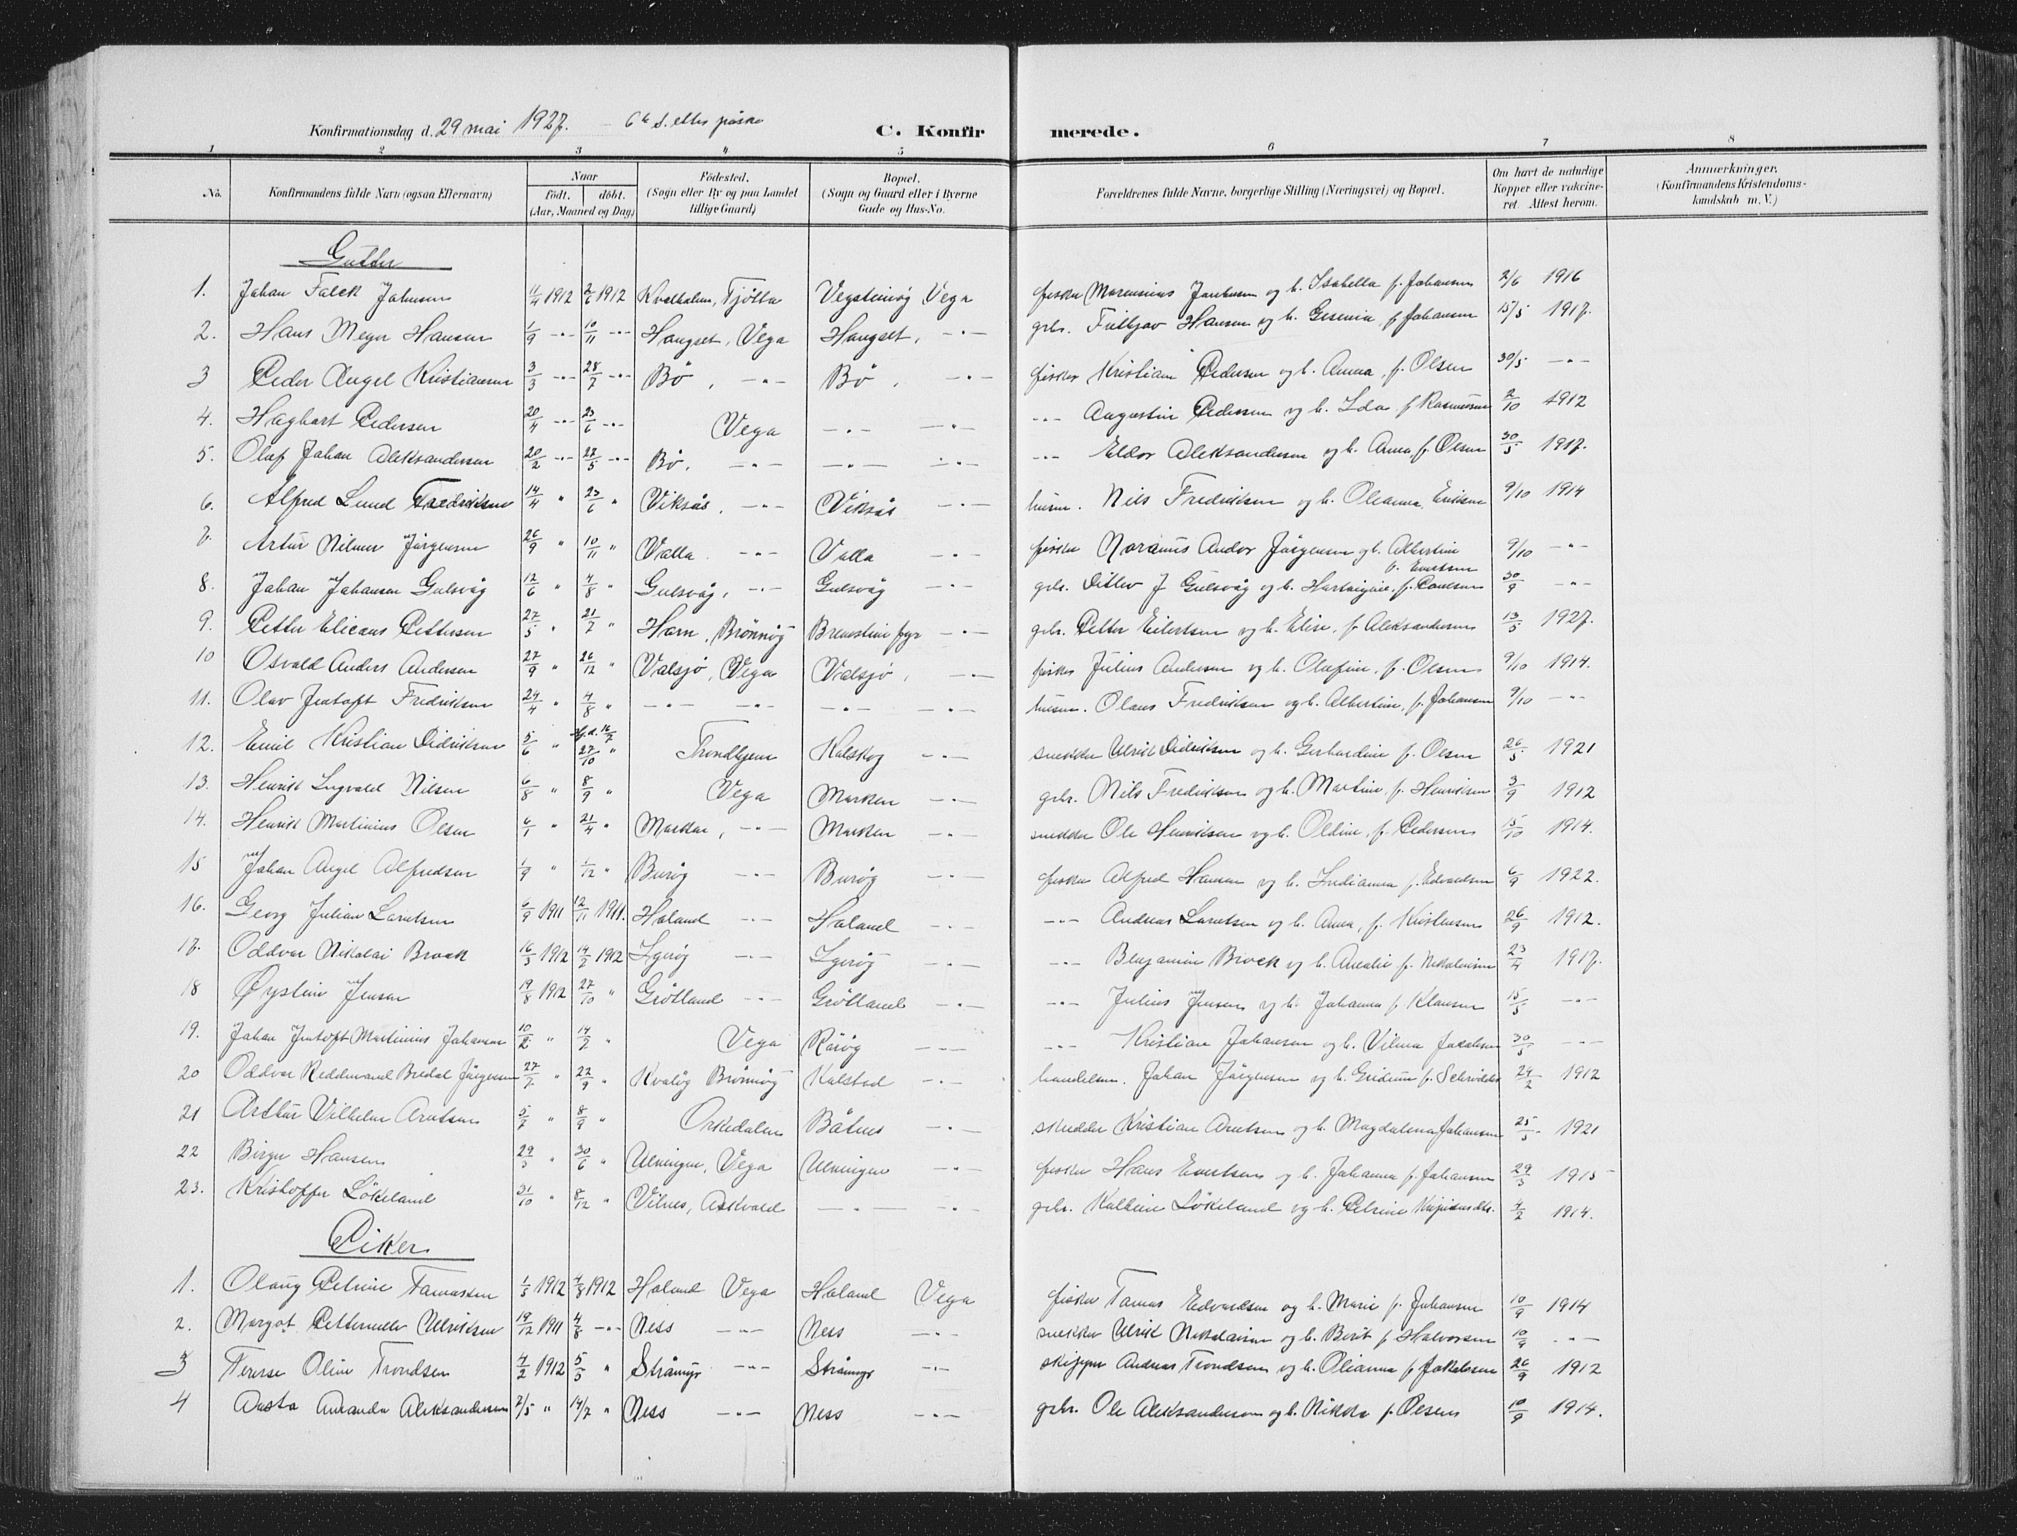 Konfirmationsdag d. 29 mai 1927. – 6te s. efter påske C. Konfirmerede.
1 2 3 4 5 6 7 8
No. Konfirmandens fulde Navn (ogsaa Efternavn) Naar født. døbt. (Aar, Maaned og Dag) Fødested. (Sogn eller By og paa Landet tillige Gaard) Bopæl. (Sogn og Gaard eller i Byerne Gade og Hus-No. Forældrenes fulde Navne, borgerlige Stilling (Næringsvei) og Bopæl. Om havt de naturlige Kopper eller vakcineret. Attest herom. Anmærkninger. (Konfirmandens Kristendomskundskab m. V.)
Gutter
1. Johan Falck 11/4 1912 2/6 1912 Kvalholm, Tjøtta Vega fisker og h. Isabella f. Johansen 2/6 1916
2. Hans Meyer Hansen 1/9 -"- 10/11 -"- Hongset, Vega Hongset, -"- grbr. Hansen og h. Gesenia, f. Johansen 15/5 1917.
3 Peder Angel Kristiansen 3/3 -"- 28/7 -"- Bø, -"- Bø, -"- fisker Kristian Pedersen og h. Anna, f. Olsen 30/5 -"-
4. Hagbart Pedersen 20/4 -"- 23/6 -"- Vega -"- -"- -"- Augustin Pedersen og h. Ida f. Rasmussen 2/10 1912
5. Olaf Johan Aleksandersen 20/2 -"- 27/5 -"- Bø. -"- -"- -"- -"- Eldor Aleksandersen og h. Anna f. Olsen 30/5 1917.
6. Alfred Lund Fredriksen 14/4 " 23/6 " Viksås, -"- Viksås -"- husm. Nils Fredriksen og h. Oleanna Eriksen 9/10 1914
7. Artur Nilmer Jørgensen 26/9 " 10/11 " Valla -"- Valla -"- fisker Andor Jørgensen og h. Albertine f. Evertsen 9/10 -"-
8. Johan Johansen Gulsvåg 12/6 " 4/8 " Gulsvåg, -"- Gulsvåg -"- grbr. Ditlev J Gulsvåg og h. f. Paulsen 30/9 -"-
9. Petter Elieaus Pettersen 27/5 " 21/7 " Horn, Brønnøy -"- grbr. Petter Eilertsen og h. Elise, f. Aleksandersen 13/5 1927.
10 Osvald Anders Andersen 27/9 " 26/12 " Valsjø, Vega Valsjø, -"- fisker Julius Andersen og h. Olufine, f. Olsen 9/10 1914.
11. Olav Jentoft Fredriksen 24/4 " 4/8 " -"- -"- -"- -"- husm. Olaus Fredriksen og h. Albertine, f. Johansen 9/10 -"-
12. Emil Kristian Didriksen 5/6 " 27/10 " Trondhjem Kalskog -"- snekker Ulrik Didriksen og h. Gerhardine f. Olsen 26/5 1921
13. Henrik Ingvald Nilsen 6/8 " 8/9 " Vega Marken -"- grbr. Nils Fredriksen og h. Martine, f. Henriksen 3/9 1912
14. Henrik Martinius Olsen 6/1 " 21/4 " Marken, -"- Marken -"- snekker Ole Henriksen og h. Oldine, f. Pedersen 15/10 1914.
15 Johan Angel Alfredsen 1/9 " 1/12 " Burøy -"- Burøy -"- fisker Alfred Hansen og h. Indianna f. Edvardsen 6/9 1922.
16. Georg Julian Larntsen 6/9 1911 12/11 1911. Holand -"- Holand -"- -"- Andreas Larntsen og h. Anna, f. Kristensen 26/9 1912.
17. Oddvar Nikolai Brock 16/3 1912 14/2 1912 Igerøy -"- Igerøy -"- -"- Benjamin Brock og h. Amalie f. Nikolaisen 23/4 1917.
18 Øystein Jensen 19/8 1912 27/10 " Grøtland -"- Grøtland -"- -"- Julius Jensen og h. Johanna f. Klausen 15/5 -"-
19. Johan Jentoft Martinius Johansen 10/2 " 14/2 " Vega Rørøy -"- -"- Kristian Johansen og h. Vilma Jakobsen 30/5 -"-
20 Oddvar Reddervand Bredal Jørgensen 27/7 " 22/9 " Kvaløy Brønnøy Kulstad -"- handelsm. Johan Jørgensen og h. Gudrun f. Schrøder 24/2 1912
21 Artur Vilhelm Arntsen 5/7 " 8/9 " Orkedalen Båtnes -"- skredder Kristian Arntsen og h. Magdalena Johansen 25/5 1921
22 Birger Hansen 29/3 " 30/6 " Ulvingen, Vega Ulvingen -"- fisker Hans Evertsen og h. Johanna f. Johansen 29/3 1915
23. Kristoffer Løkeland 31/10 " 8/12 " Vilnes, Askvold -"- -"- grbr. Løkeland og h. Petrine 4/2 1914.
Piker
1. Olaug Petrine Tomassen 1/3 1912 4/8 1912 Holand Vega Holand Vega fisker Tomas Edvardsen og h. Marie f. Johansen 10/9 1914
2. Margot Ulriksen 19/12 1911 4/8 -"- Ness -"- Ness -"- snekker Ulrik Nikolaisen og h. Berit f. Halvorsen 10/9 -"-
3 Terese Oline Trondsen 4/2 1912 5/5 " -"- -"- skipper Andreas Trondsen og h. Olianna f. Jakobsen 26/9 1912
4 Aasta Amanda Aleksandersen 2/5 " 14/7 " Ness -"- Ness -"- grbr. Ole Aleksandersen og h. Nikka f. Olsen 10/9 1914.